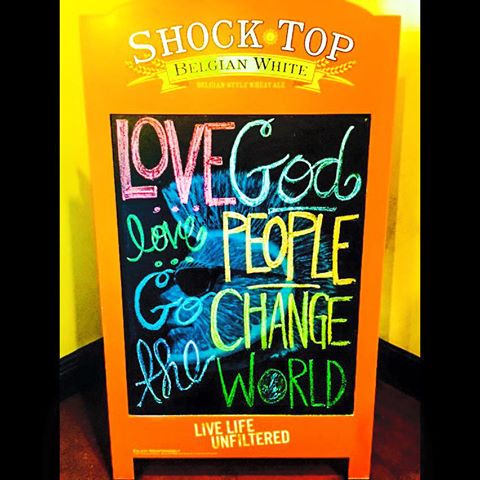 SHOCK TOP
BELGIAN WHITE
BELGIAN-STYLE WHEAT ALE
LOVE God
love PEOPLE
Go CHANGE
the WORLD
LIVE LIFE
UNFILTERED